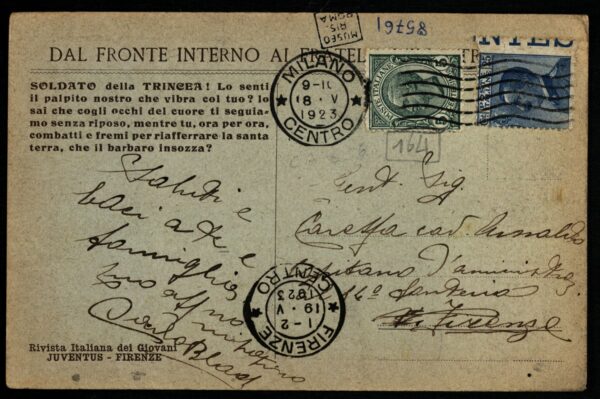 MUSEO
RIS.
ROMA
85761
DAL FRONTE INTERNO AL
NTES
SOLDATO della TRINCEA! Lo senti
il palpito nostro che vibra col tuo? lo
sai che cogli occhi del cuore ti seguia-
mo senza riposo, mentre tu, ora per ora,
combatti e fremi per riafferrare la santa
terra, che il barbaro insozza?
MILANO
9-10
18·V
1923
CENTRO
POSTE ITALIANE
164
Saluti e
baci a te e
famiglia
tuo aff mo
Gent. Sig.
Caretta cav. Arnaldo
Capitano d'amministraz
Firenze
FIRENZE
1-2
19·V
1923
CENTRO
Rivista Italiana dei Giovani
JUVENTUS - FIRENZE